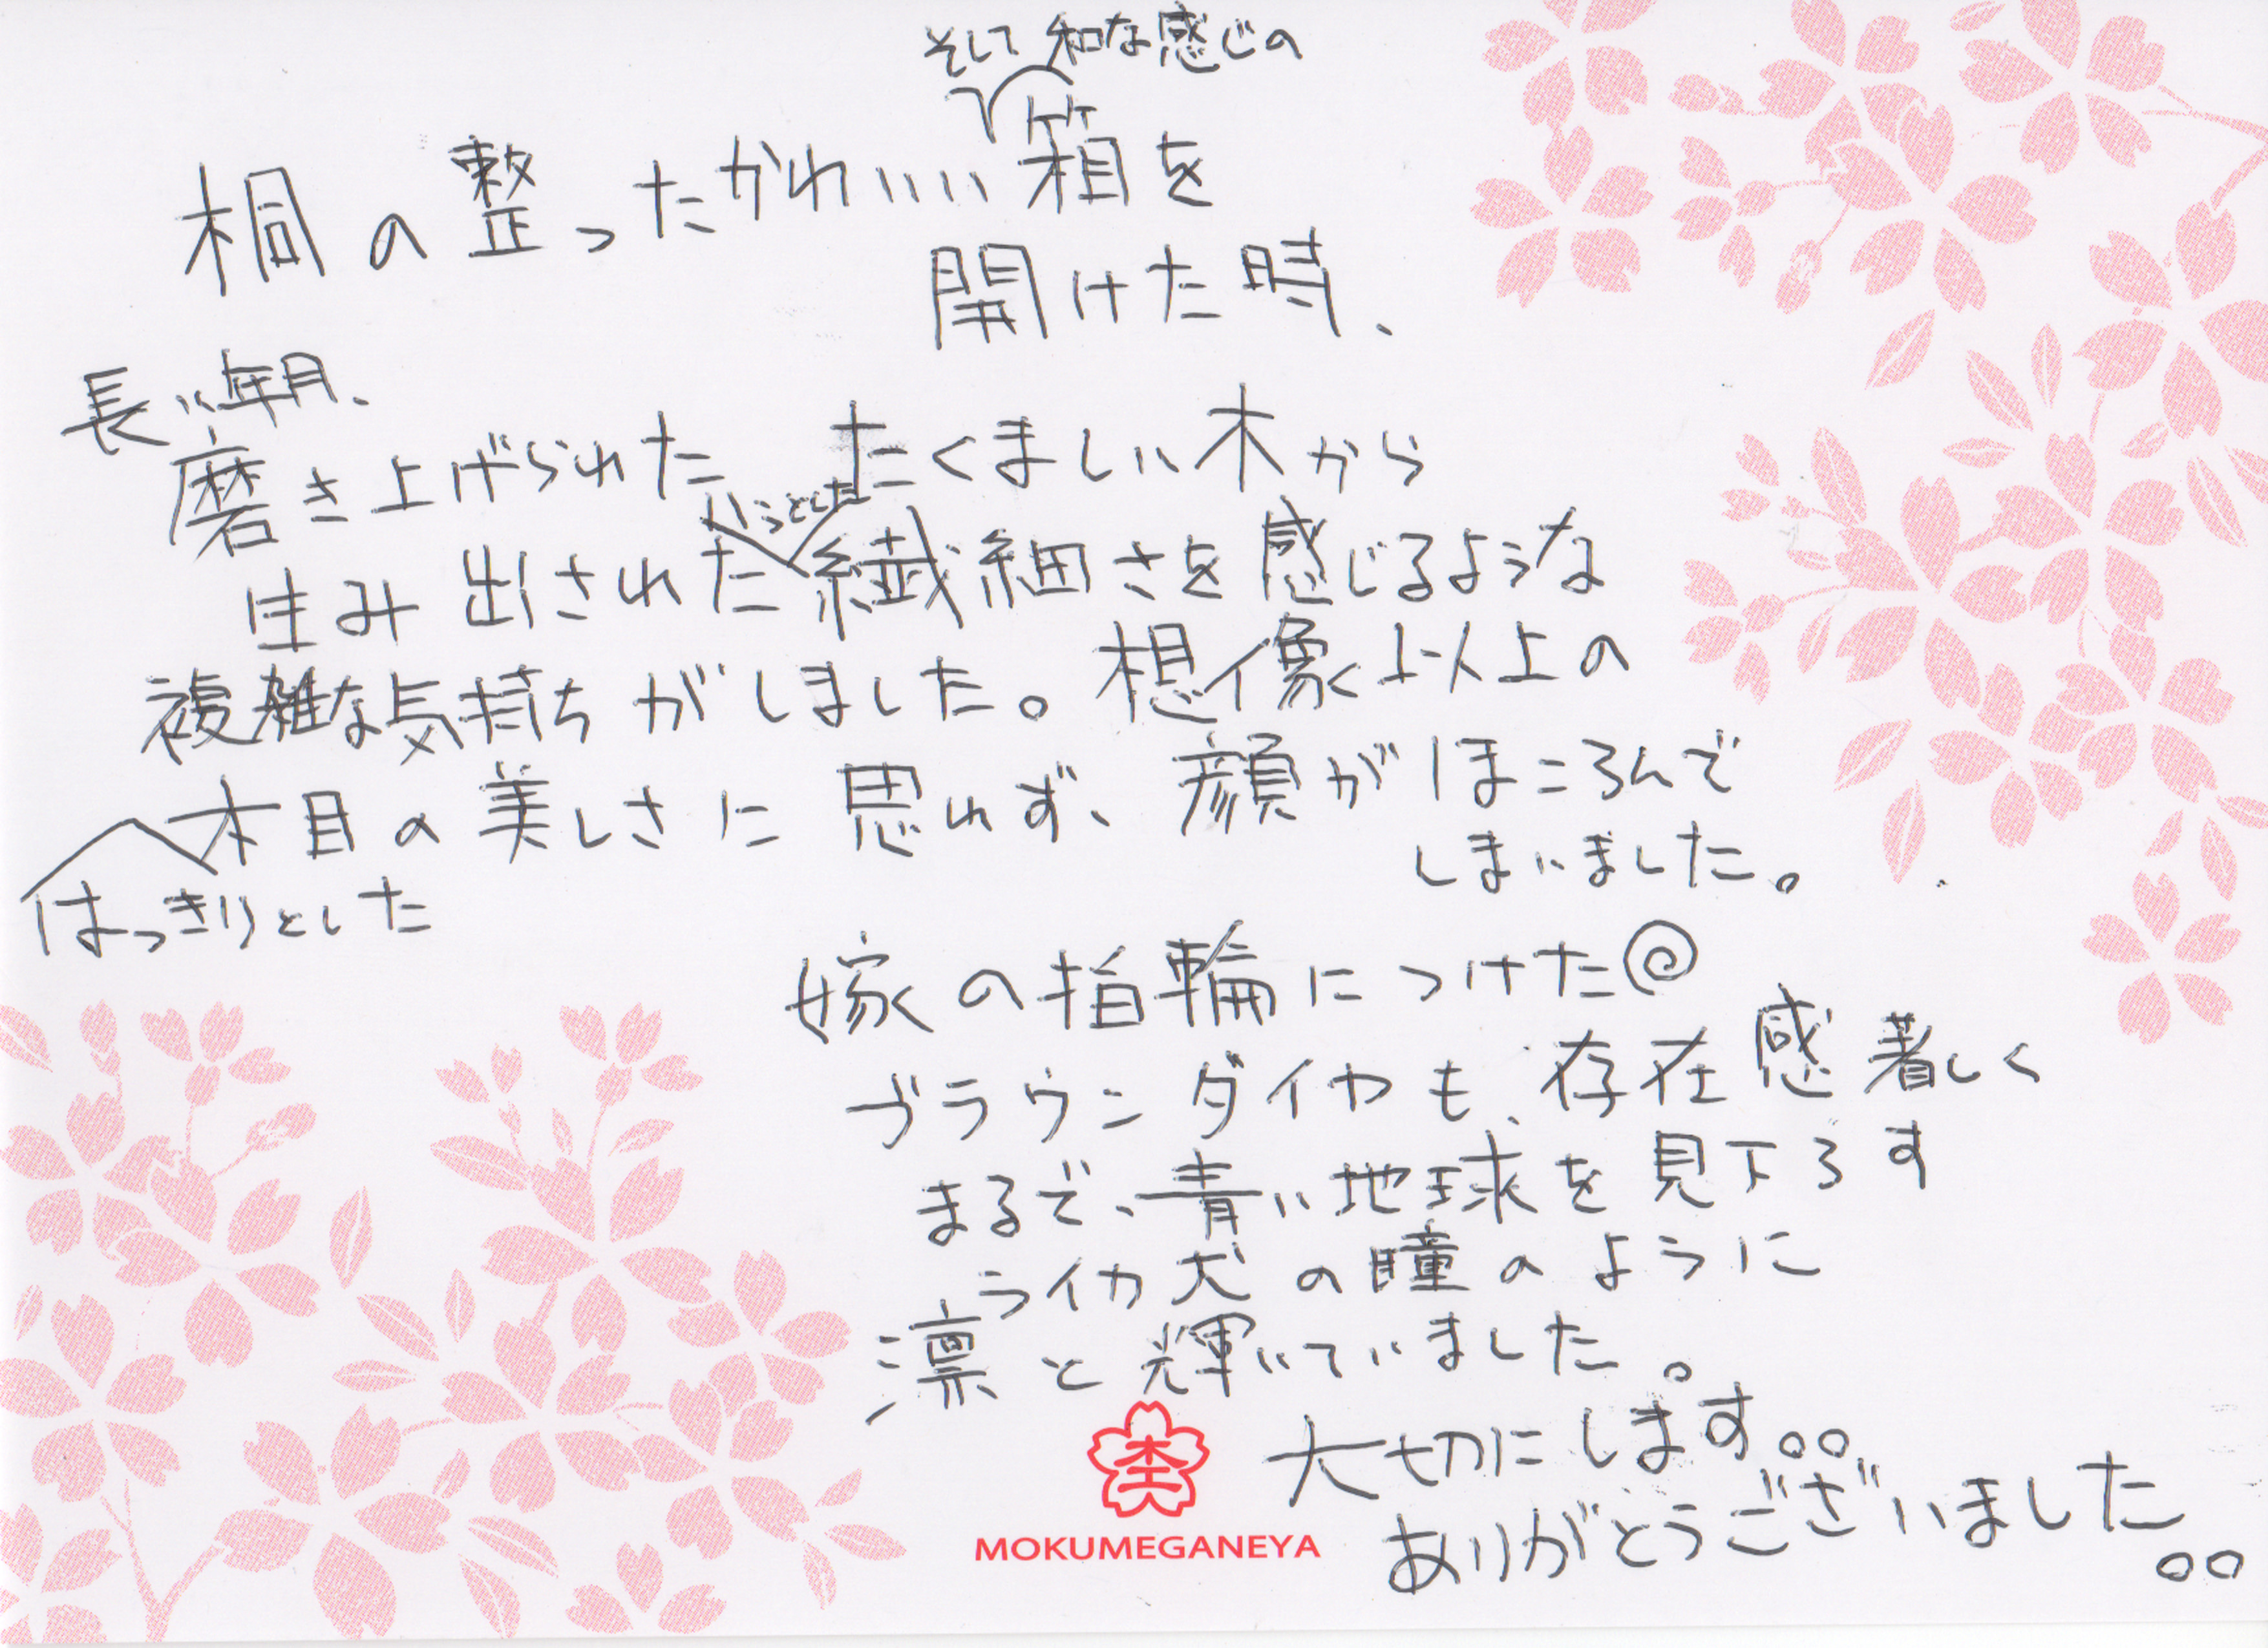 そして 和な感じの
桐の整ったかわいい箱を
開けた時、
長い年月、
磨き上げられた たくましい木から
りっとした
生み出された繊細さを感じるような
複雑な気持ちがしました。想像以上の
木目の美しさに思わず、顔がほころんで
しまいました。
はっきりとした
嫁の指輪につけた
ブラウンダイヤも、存在感著しく
まるで、青い地球を見下ろす
ライカ犬の瞳のように
凛と輝いていました。
大切にします。。
ありがとうございました。。
MOKUMEGANEYA